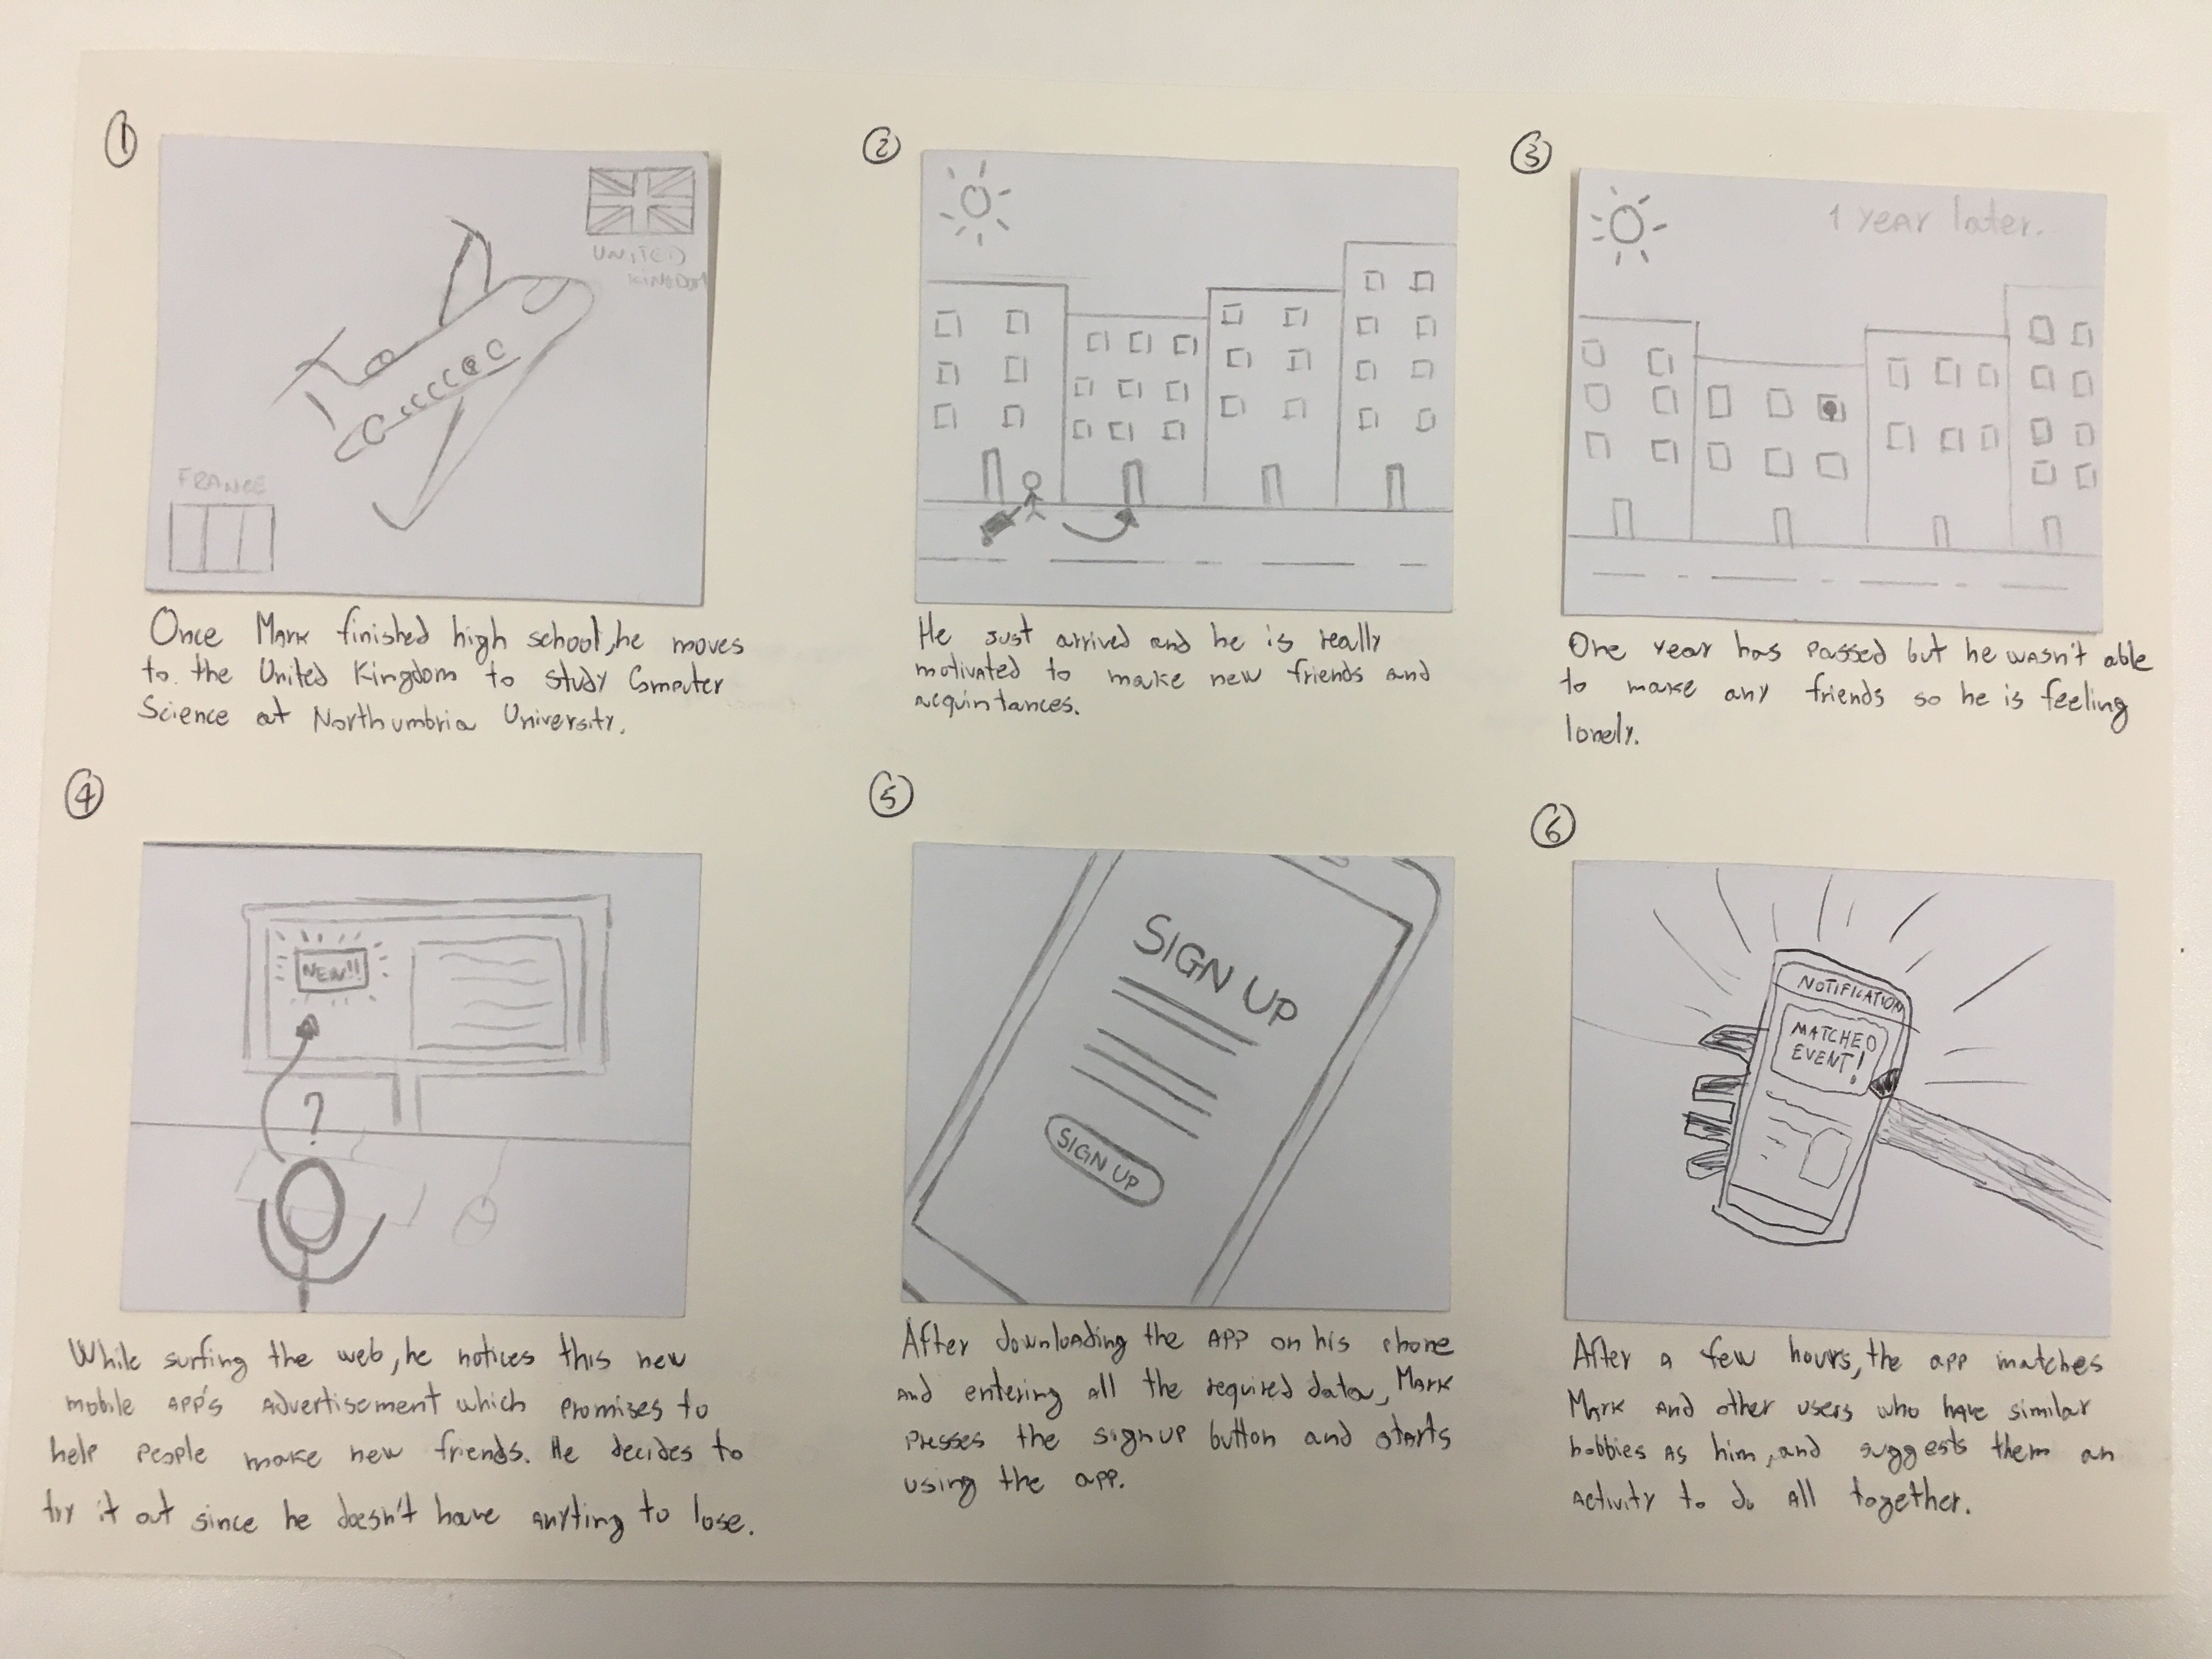 1
UNITED
KINGDOM
FRANCE
Once Mark finished high school, he moves
to the United Kingdom to study Computer
Science at Northumbria University.
2
He just arrived and he is really
motivated to make new friends and
acquintances.
3
1 year later.
One year has passed but he wasn't able
to make any friends so he is feeling
lonely.
4
NEW!!
?
While surfing the web, he notices this new
mobile app's advertisement which promises to
help people make new friends. He decides to
try it out since he doesn't have anyting to lose.
5
SIGN UP
SIGN UP
After downloading the app on his phone
and entering all the required data, Mark
presses the signup button and starts
using the app.
6
NOTIFICATION
MATCHED
EVENT!
After a few hours, the app matches
Mark and other users who have similar
hobbies as him, and suggests them an
activity to do all together.